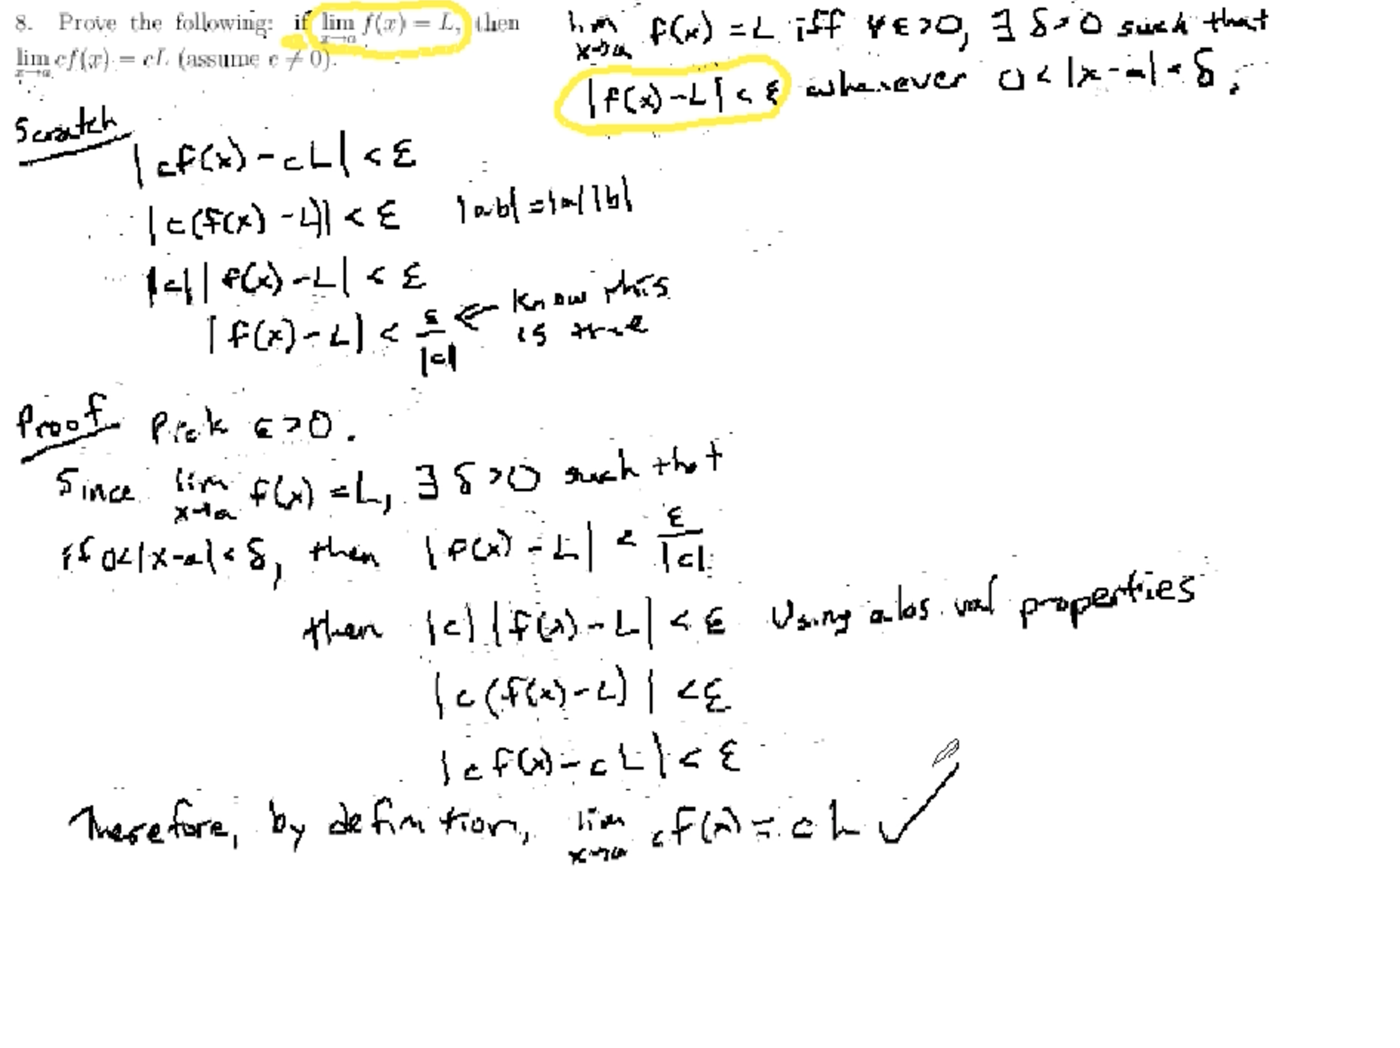 8. Prove the following: if lim f(x) = L, then
x→a
lim cf(x) = cL (assume c ≠ 0).
x→a
lim f(x) = L iff ∀ε>0, ∃ δ>0 such that
x→a
|f(x)-L| < ε whenever 0<|x-a|<δ.
Scratch
|cf(x)-cL| < ε
|c(f(x)-L)| < ε |ab|=|a||b|
|c||f(x)-L| < ε
|f(x)-L| < ε/|c| ← Know this is true
Proof Pick ε>0.
Since lim f(x)=L, ∃ δ>0 such that
x→a
if 0<|x-a|<δ, then |f(x)-L| < ε/|c|.
then |c||f(x)-L| < ε Using abs. val properties
|c(f(x)-L)| < ε
|cf(x)-cL| < ε
Therefore, by definition, lim cf(x) = cL ✓
x→a